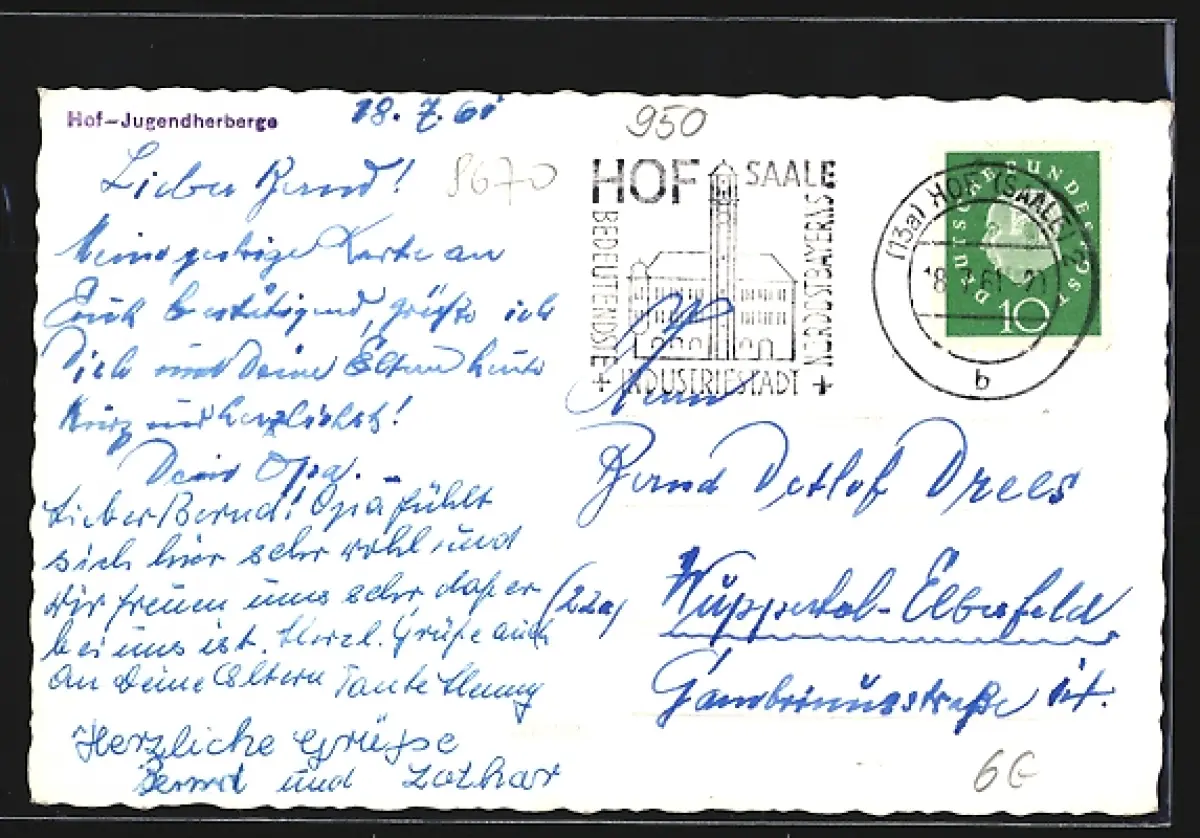 Hof-Jugendherberge
18. 7. 61
950
8670
Lieber Bernd!
Meine gestrige Karte an
Euch bestätigend, grüße ich
Dich und Deine Eltern heute
kurz und herzlichst!
Dein Opa.
Lieber Bernd! Opa fühlt
sich hier sehr wohl und
wir freuen uns sehr, daß er
bei uns ist. Herzl. Grüße auch
an Deine Eltern Tante
Herzliche Grüße
und Lothar
HOF SAALE
BEDEUTENDSTE
INDUSTRIESTADT
NORDOSTBAYERNS
(13a) HOF (SAALE) 2
18.7.61-21
b
DEUTSCHE BUNDESPOST
10
Herrn
Bernd Detlof Drees
(22a) Wuppertal-Elberfeld
Gambrinusstraße
6E